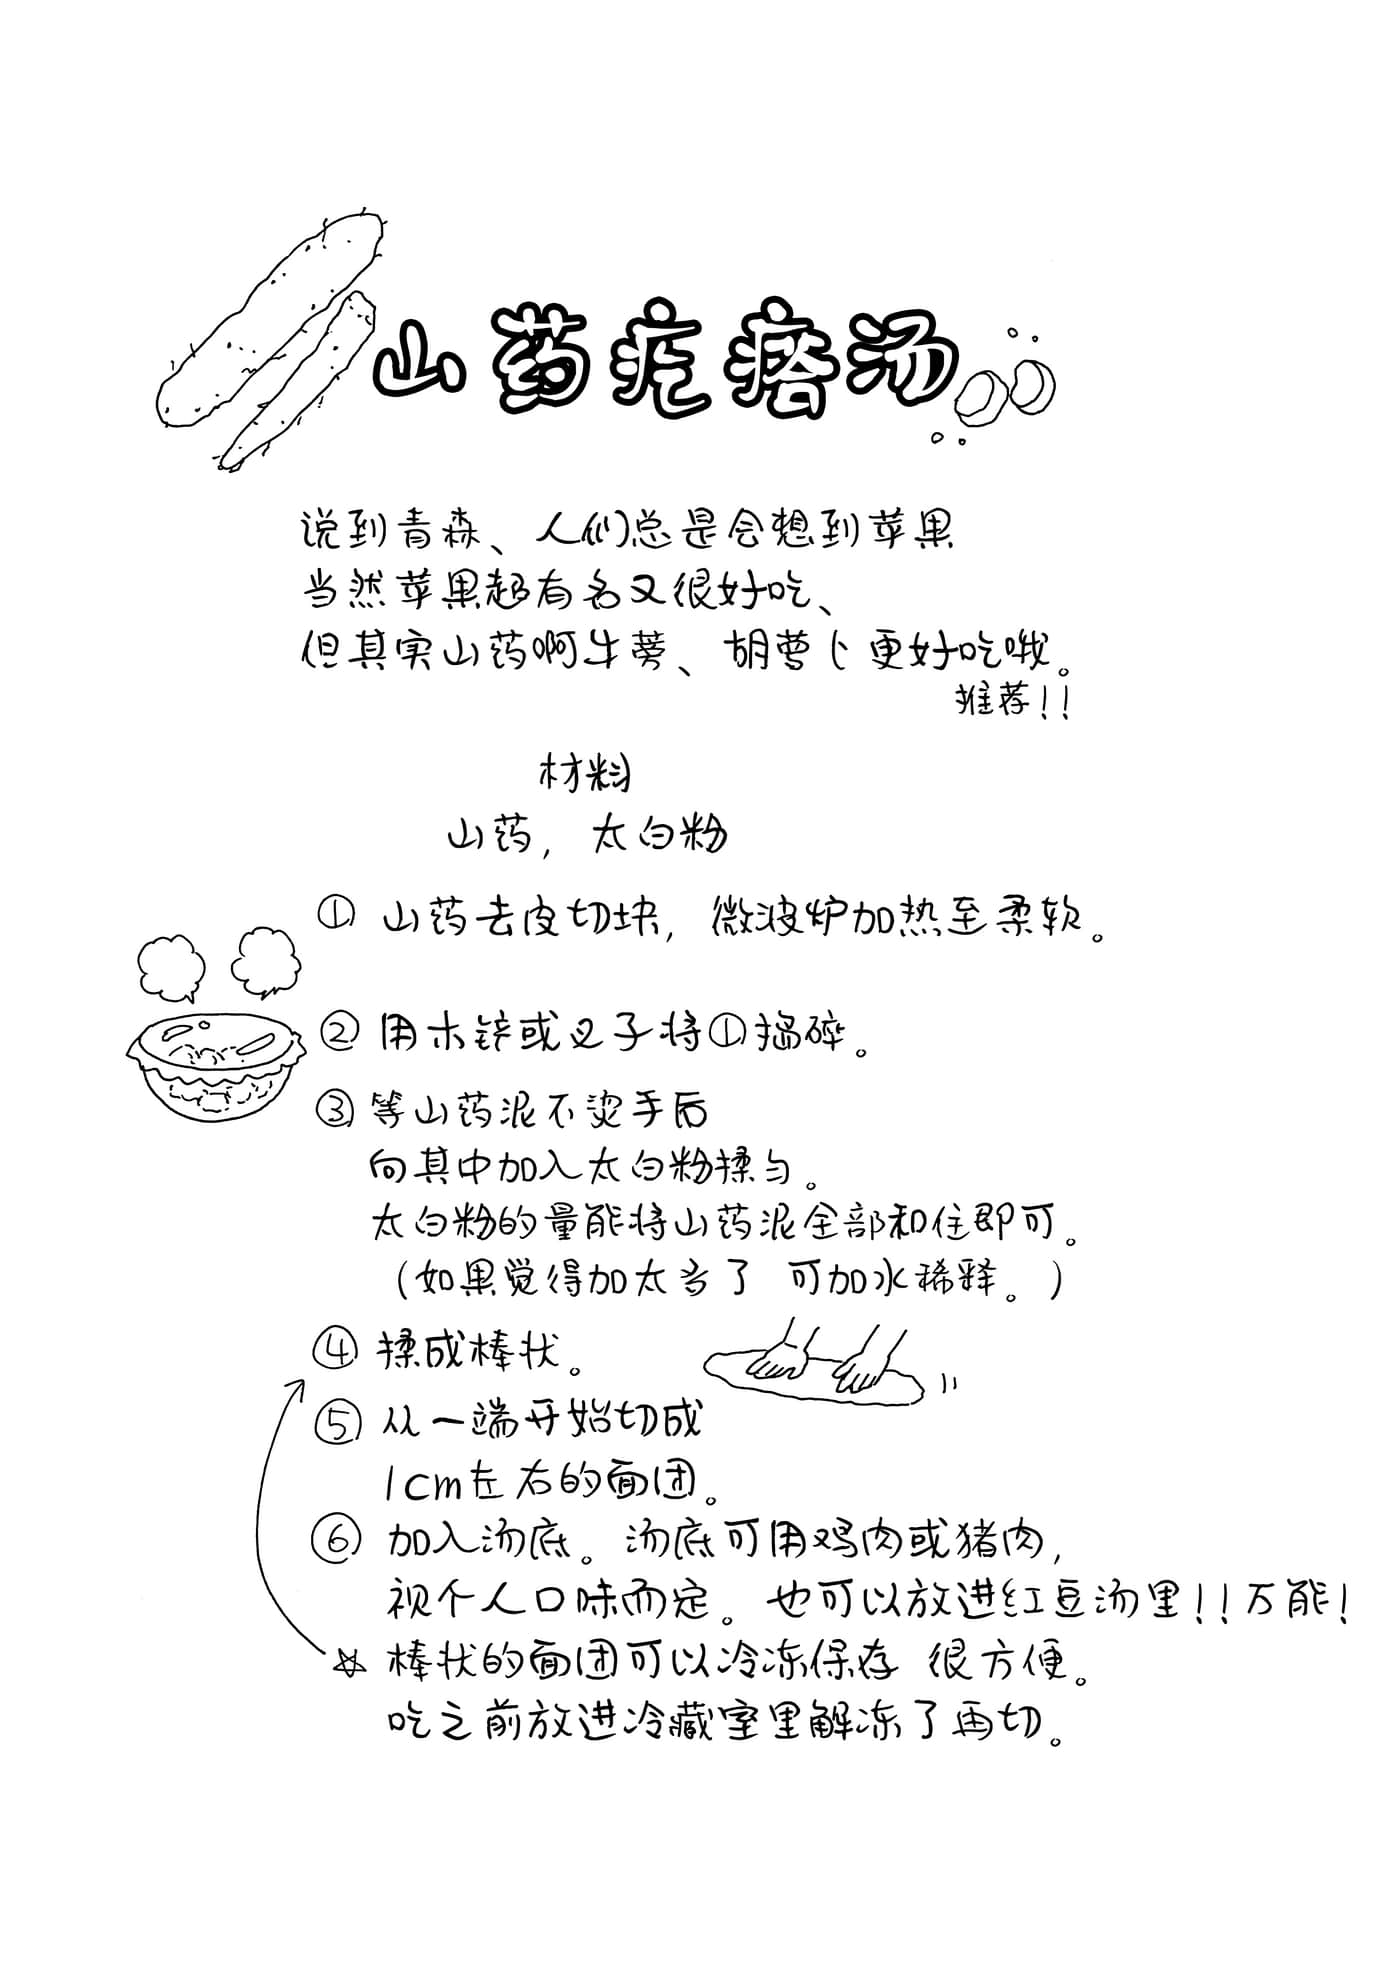 山药疙瘩汤
说到青森、人们总是会想到苹果
当然苹果超有名又很好吃、
但其实山药啊牛蒡、胡萝卜更好吃哦。
推荐!!
材料
山药，太白粉
① 山药去皮切块，微波炉加热至柔软。
② 用木铲或叉子将①捣碎。
③ 等山药泥不烫手后
向其中加入太白粉揉匀。
太白粉的量能将山药泥全部和住即可。
（如果觉得加太多了 可加水稀释。）
④ 揉成棒状。
⑤ 从一端开始切成
1cm左右的面团。
⑥ 加入汤底。汤底可用鸡肉或猪肉，
视个人口味而定。也可以放进红豆汤里!!万能!
☆ 棒状的面团可以冷冻保存 很方便。
吃之前放进冷藏室里解冻了再切。